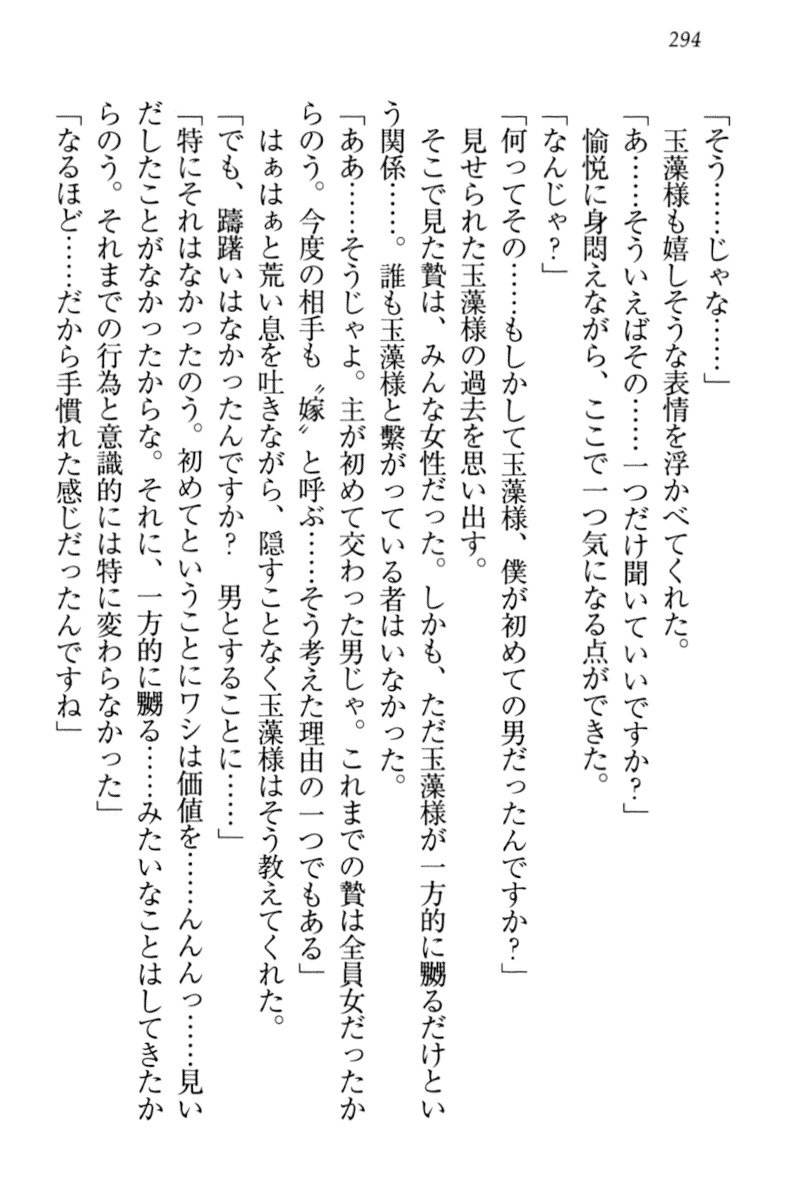 294
「そう……じゃな……」
玉藻様も嬉しそうな表情を浮かべてくれた。
「あ……そういえばその……一つだけ聞いていいですか？」
愉悦に身悶えながら、ここで一つ気になる点ができた。
「なんじゃ？」
「何ってその……もしかして玉藻様、僕が初めての男だったんですか？」
見せられた玉藻様の過去を思い出す。
そこで見た贄は、みんな女性だった。しかも、ただ玉藻様が一方的に嬲るだけとい
う関係……。誰も玉藻様と繋がっている者はいなかった。
「ああ……そうじゃよ。主が初めて交わった男じゃ。これまでの贄は全員女だったか
らのう。今度の相手も〝嫁〟と呼ぶ……そう考えた理由の一つでもある」
はぁはぁと荒い息を吐きながら、隠すことなく玉藻様はそう教えてくれた。
「でも、躊躇いはなかったんですか？　男とすることに……」
「特にそれはなかったのう。初めてということにワシは価値を……んんんっ……見い
だしたことがなかったからな。それに、一方的に嬲る……みたいなことはしてきたか
らのう。それまでの行為と意識的には特に変わらなかった」
「なるほど……だから手慣れた感じだったんですね」